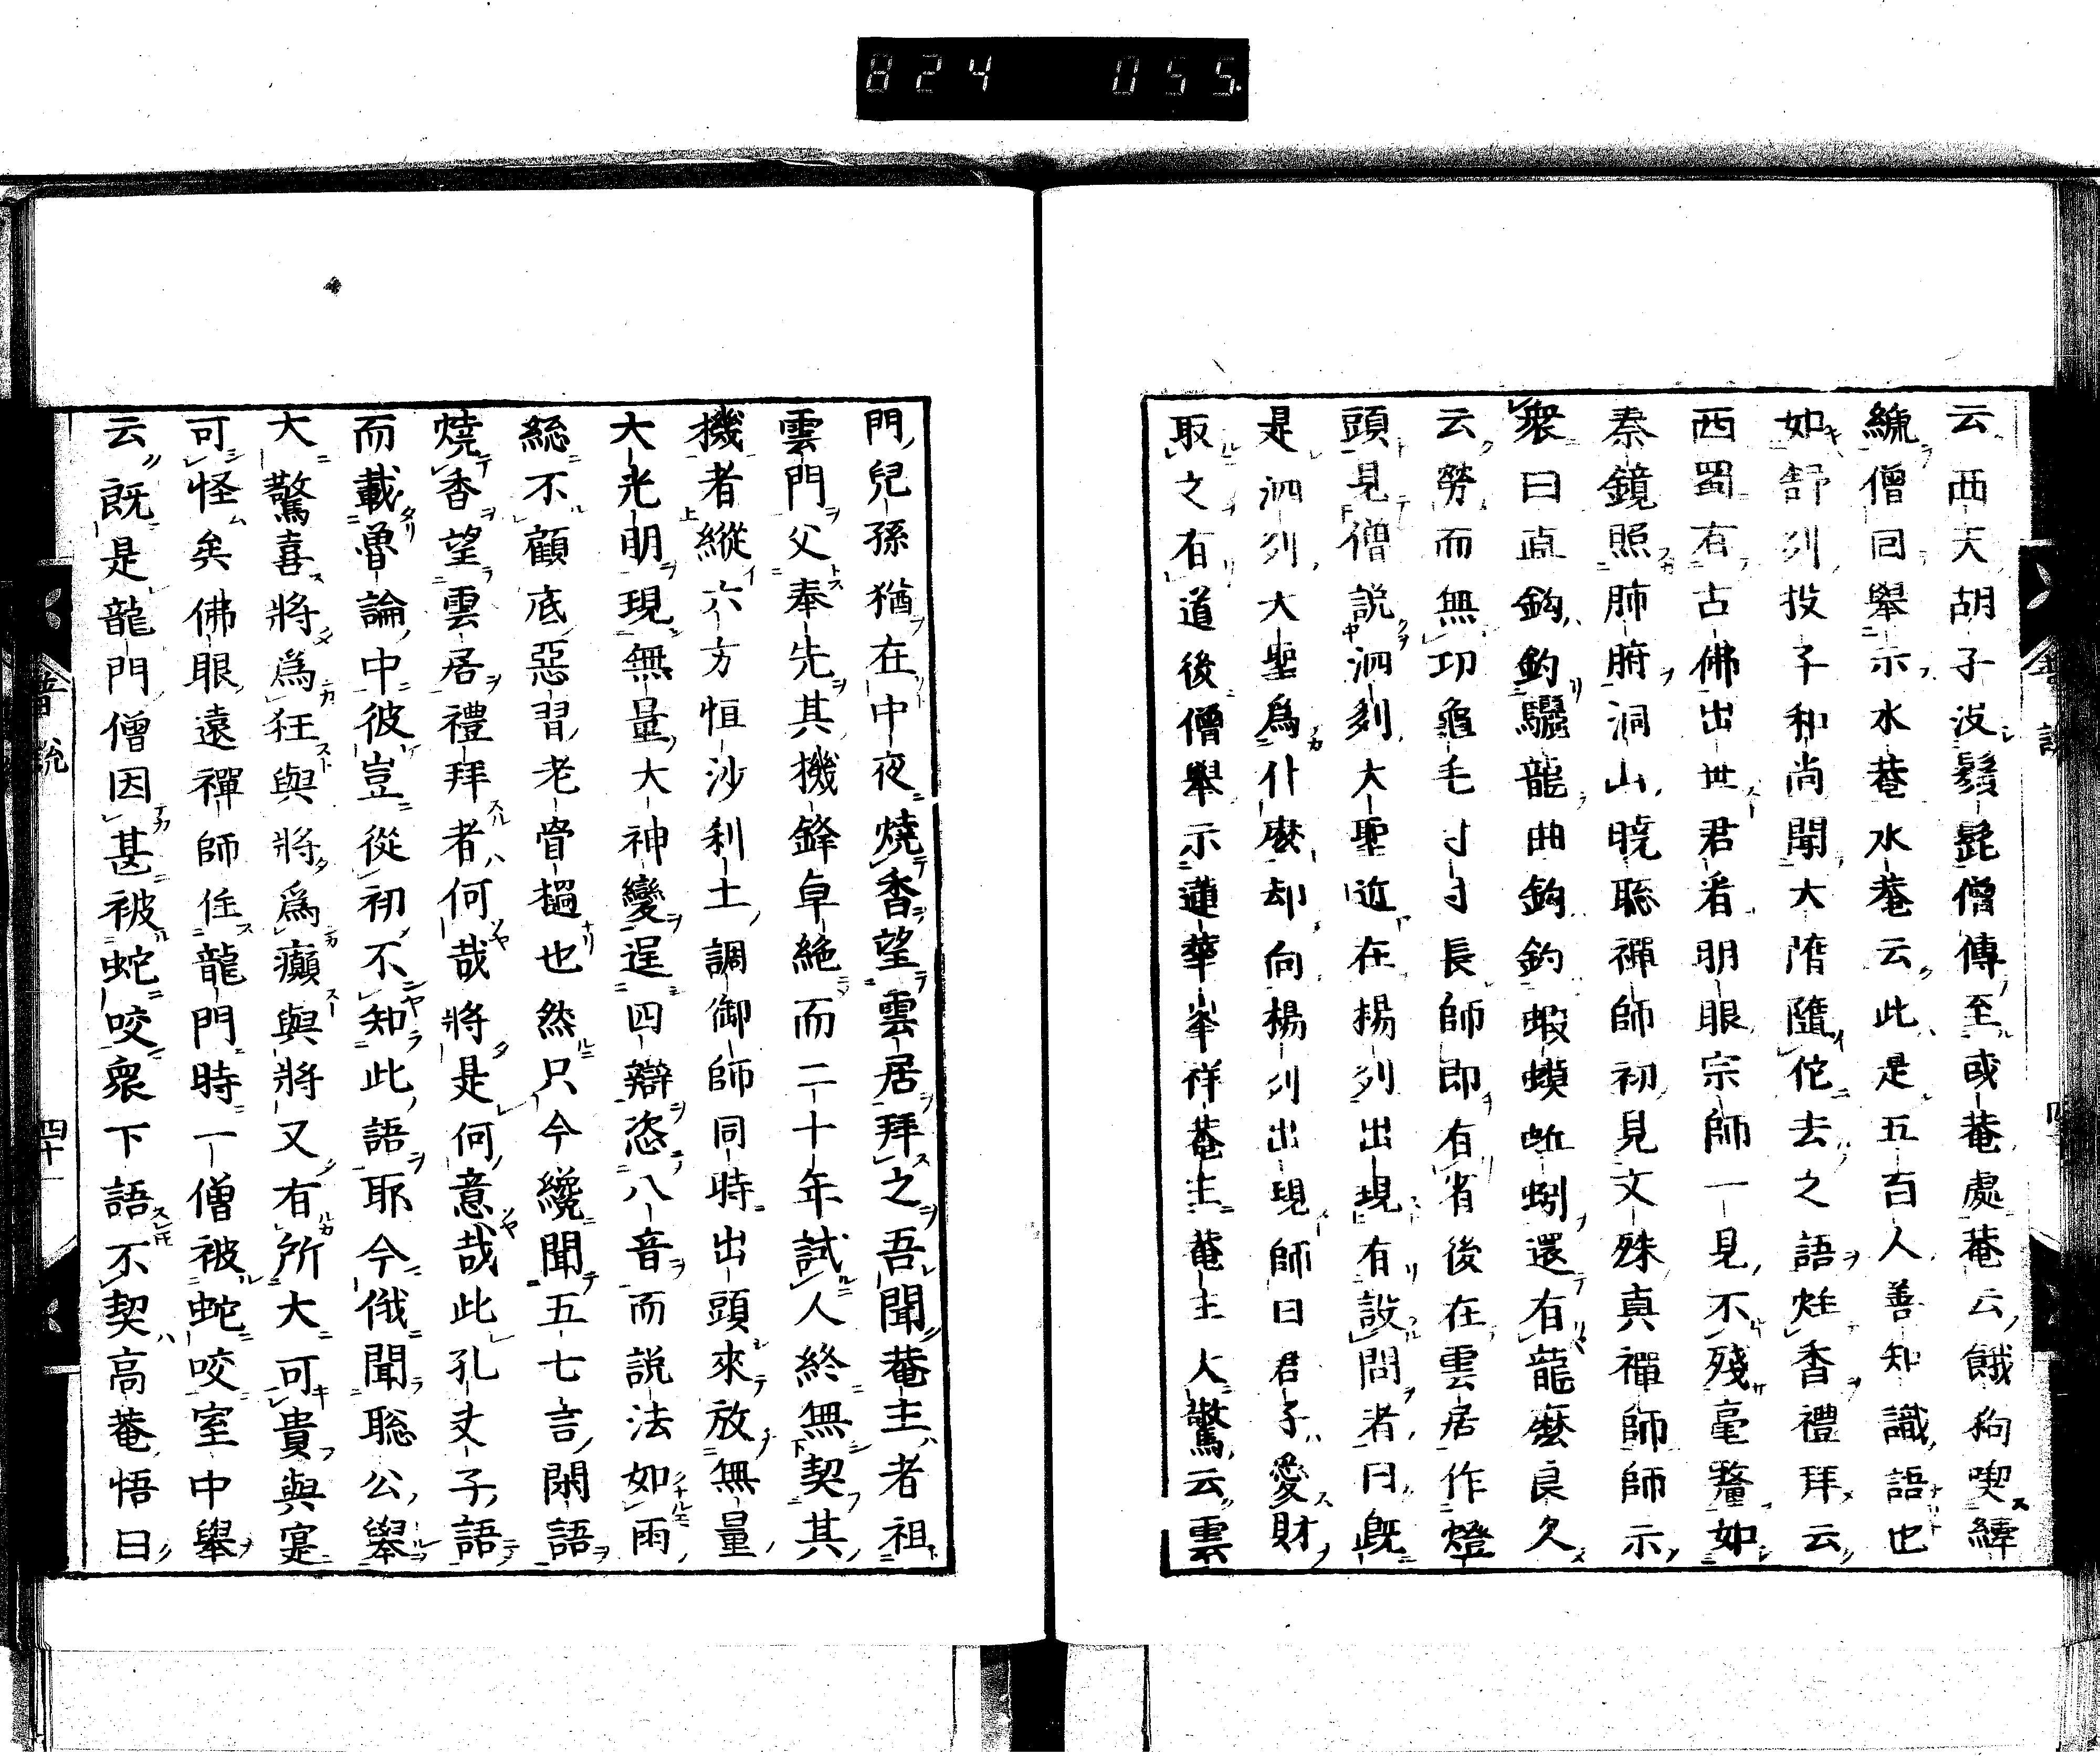 824 055
云西天胡子没鬚髭僧傳至或菴處菴云餓狗喫繂
䌫僧回舉示水菴水菴云此是五百人善知識語也
如舒列投子和尚聞大隋隨佗去之語炷香禮拜云
西蜀有古佛出世君看明眼宗師一見不殘毫釐如
秦鏡照肺腑洞山曉聰禪師初見文殊真禪師師示
衆曰直鈎釣驪龍曲鈎釣蝦蟆蚯蚓還有龍麼良久
云勞而無功龜毛寸寸長師即有省後在雲居作燈
頭見僧説泗列大聖近在揚列出現有設問者曰既
是泗列大聖爲什麼却向楊列出現師曰君子愛財
取之有道後僧舉示蓮華峯祥菴主菴主大驚云雲
門兒孫猶在中夜燒香望雲居拜之吾聞菴主者祖
雲門父奉先其機鋒卓絶而二十年試人終無契其
機者縱六方恒沙刹土調御師同時出頭來放無量
大光明現無量大神變逞四辯恣八音而説法如雨
総不顧底惡習老骨檛也然只今纔聞五七言閑語
燒香望雲居禮拜者何哉將是何意哉此孔丈子語
而載魯論中彼豈從初不知此語耶今俄聞聡公舉
大驚喜將爲狂與將爲癲與將又有所大可貴與寔
可怪矣佛眼遠禪師住龍門時一僧被蛇咬室中舉
云既是龍門僧因甚被蛇咬衆下語不契高菴悟曰
普説
四十一